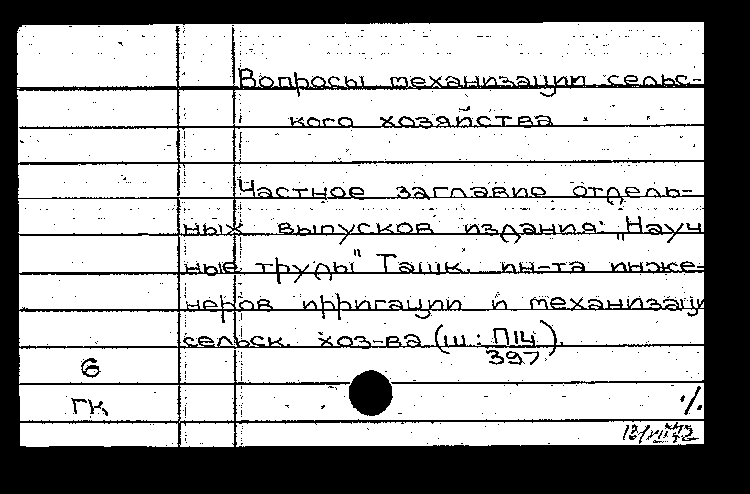 Вопросы механизации сельс-
кого хозяйства
Частное заглавие отдель-
ных выпусков издания: „Науч
ные труды" Ташк. ин-та инже-
неров ирригации и механизаци
сельск. хоз-ва (ш: П14
397).
6
ГК
·/.